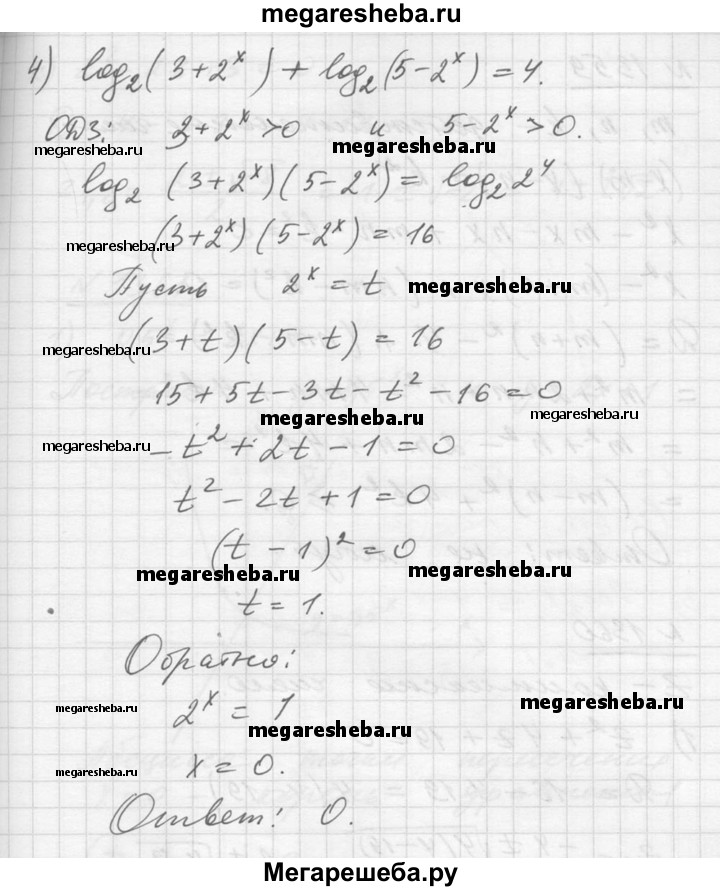 megaresheba.ru
4) log₂(3+2ˣ) + log₂(5-2ˣ) = 4.
ОДЗ: 3+2ˣ>0 и 5-2ˣ>0.
megaresheba.ru megaresheba.ru
log₂ (3+2ˣ)(5-2ˣ) = log₂2⁴
(3+2ˣ)(5-2ˣ) = 16
megaresheba.ru
Пусть 2ˣ = t
megaresheba.ru
(3+t)(5-t) = 16
megaresheba.ru
15+5t-3t-t²-16=0
megaresheba.ru megaresheba.ru
-t²+2t-1=0
megaresheba.ru
t²-2t+1=0
(t-1)²=0
megaresheba.ru megaresheba.ru
t=1.
Обратно:
megaresheba.ru megaresheba.ru
2ˣ = 1
megaresheba.ru
x=0.
megaresheba.ru
Ответ: 0.
Мегарешеба.ру